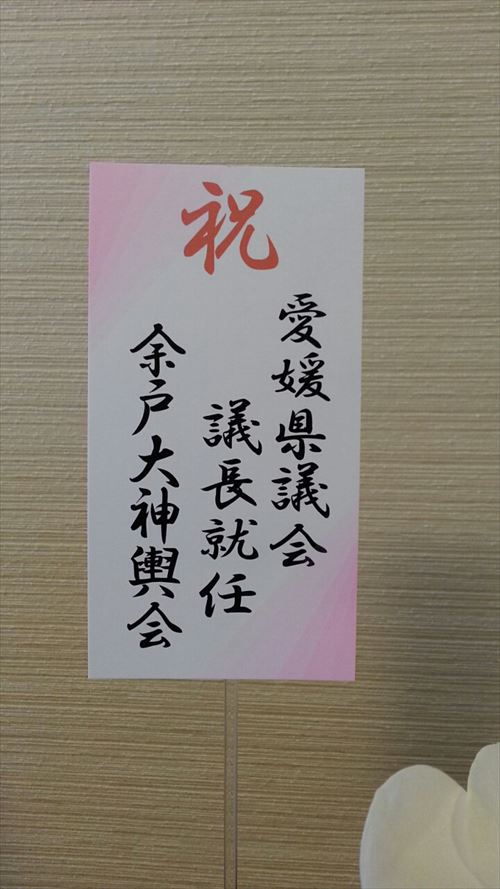 祝
愛媛県議会
議長就任
余戸大神輿会